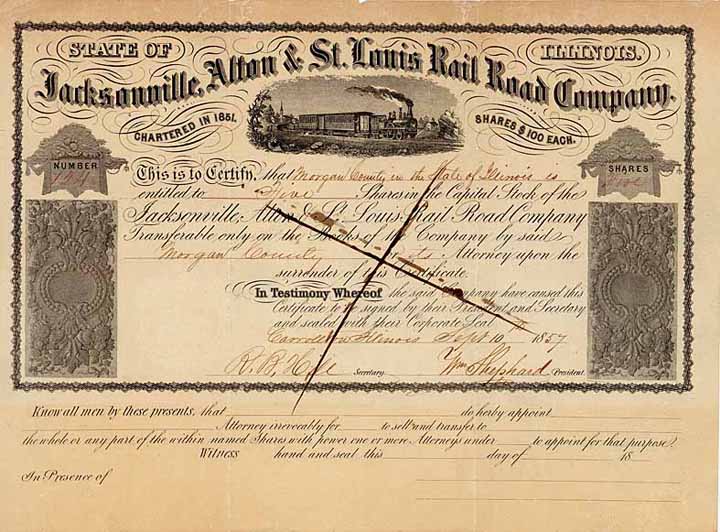 STATE OF ILLINOIS.
Jacksonville, Alton & St. Louis Rail Road Company.
CHARTERED IN 1851. SHARES $100 EACH.
NUMBER
SHARES
Five
This is to Certify, that Morgan County in the State of Illinois is
entitled to Five Shares in the Capital Stock of the
Jacksonville, Alton & St. Louis Rail Road Company
Transferable only on the Books of the Company by said
Morgan County or its Attorney upon the
surrender of this Certificate.
In Testimony Whereof the said Company have caused this
Certificate to be signed by their President and Secretary
and sealed with their Corporate Seal
Carrollton Illinois Sept. 10, 1857
R. B. Hill Secretary Wm Shephard President.
Know all men by these presents, that do herby appoint
Attorney irrevocably for to sell and transfer to
the whole or any part of the within named Shares with power one or more Attorneys under to appoint for that purpose.
Witness hand and seal this day of 18
In Presence of